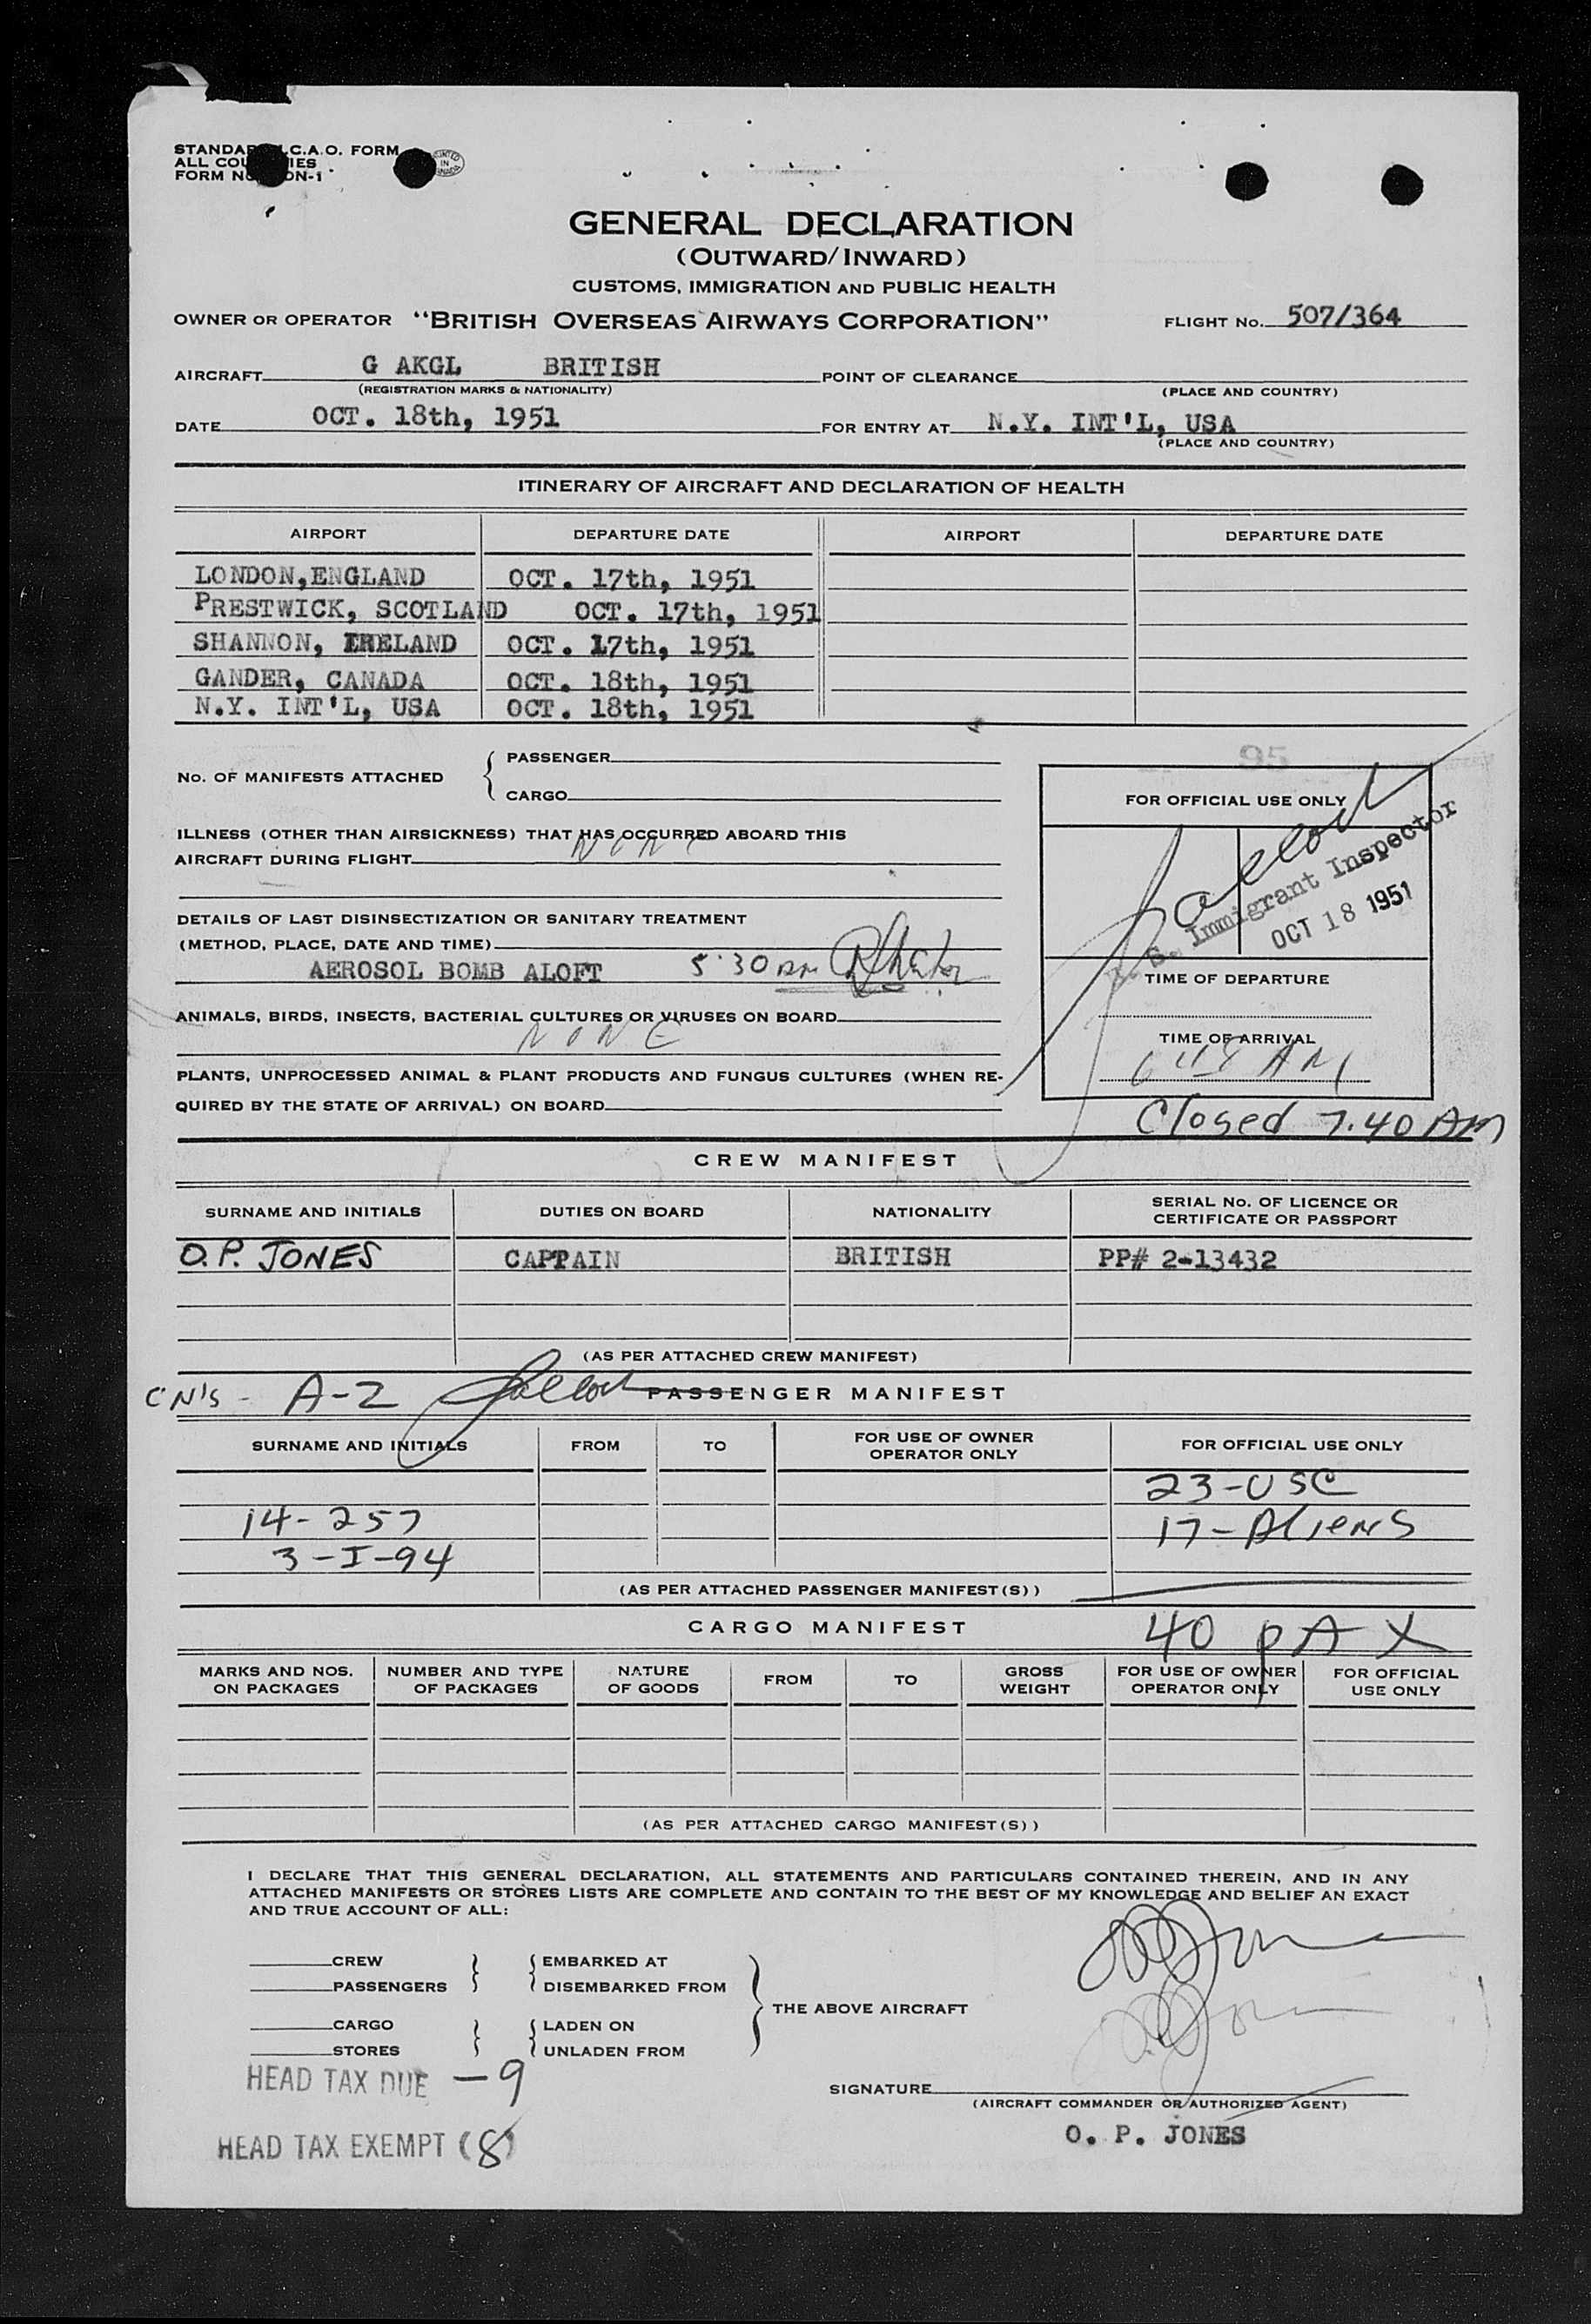 STANDAR I.C.A.O. FORM
ALL COU IES
FORM NO ON-1
GENERAL DECLARATION
(OUTWARD/INWARD)
CUSTOMS, IMMIGRATION AND PUBLIC HEALTH
OWNER OR OPERATOR "BRITISH OVERSEAS AIRWAYS CORPORATION" FLIGHT No. 507/364
AIRCRAFT G AKGL BRITISH POINT OF CLEARANCE
(REGISTRATION MARKS & NATIONALITY) (PLACE AND COUNTRY)
DATE OCT. 18th, 1951 FOR ENTRY AT N.Y. INT'L, USA
(PLACE AND COUNTRY)
ITINERARY OF AIRCRAFT AND DECLARATION OF HEALTH
AIRPORT DEPARTURE DATE AIRPORT DEPARTURE DATE
LONDON, ENGLAND OCT. 17th, 1951
PRESTWICK, SCOTLAND OCT. 17th, 1951
SHANNON, IRELAND OCT. 17th, 1951
GANDER, CANADA OCT. 18th, 1951
N.Y. INT'L, USA OCT. 18th, 1951
95
No. OF MANIFESTS ATTACHED { PASSENGER
CARGO
FOR OFFICIAL USE ONLY
ILLNESS (OTHER THAN AIRSICKNESS) THAT HAS OCCURRED ABOARD THIS
AIRCRAFT DURING FLIGHT NONE
U.S. Immigrant Inspector
OCT 18 1951
DETAILS OF LAST DISINSECTIZATION OR SANITARY TREATMENT
(METHOD, PLACE, DATE AND TIME)
AEROSOL BOMB ALOFT 5:30 AM
TIME OF DEPARTURE
ANIMALS, BIRDS, INSECTS, BACTERIAL CULTURES OR VIRUSES ON BOARD
NONE
TIME OF ARRIVAL
AM
PLANTS, UNPROCESSED ANIMAL & PLANT PRODUCTS AND FUNGUS CULTURES (WHEN RE-
QUIRED BY THE STATE OF ARRIVAL) ON BOARD
Closed 7.40 AM
CREW MANIFEST
SURNAME AND INITIALS DUTIES ON BOARD NATIONALITY SERIAL No. OF LICENCE OR CERTIFICATE OR PASSPORT
O.P. JONES CAPTAIN BRITISH PP# 2-13432
(AS PER ATTACHED CREW MANIFEST)
CN's - A-2 PASSENGER MANIFEST
SURNAME AND INITIALS FROM TO FOR USE OF OWNER OPERATOR ONLY FOR OFFICIAL USE ONLY
23-USC
14-257 17-Aliens
3-I-94
(AS PER ATTACHED PASSENGER MANIFEST(S))
CARGO MANIFEST 40 PAX
MARKS AND NOS. ON PACKAGES NUMBER AND TYPE OF PACKAGES NATURE OF GOODS FROM TO GROSS WEIGHT FOR USE OF OWNER OPERATOR ONLY FOR OFFICIAL USE ONLY
(AS PER ATTACHED CARGO MANIFEST(S))
I DECLARE THAT THIS GENERAL DECLARATION, ALL STATEMENTS AND PARTICULARS CONTAINED THEREIN, AND IN ANY
ATTACHED MANIFESTS OR STORES LISTS ARE COMPLETE AND CONTAIN TO THE BEST OF MY KNOWLEDGE AND BELIEF AN EXACT
AND TRUE ACCOUNT OF ALL:
CREW EMBARKED AT
PASSENGERS DISEMBARKED FROM
THE ABOVE AIRCRAFT
CARGO LADEN ON
STORES UNLADEN FROM
HEAD TAX DUE - 9
SIGNATURE
(AIRCRAFT COMMANDER OR AUTHORIZED AGENT)
O. P. JONES
HEAD TAX EXEMPT (8)